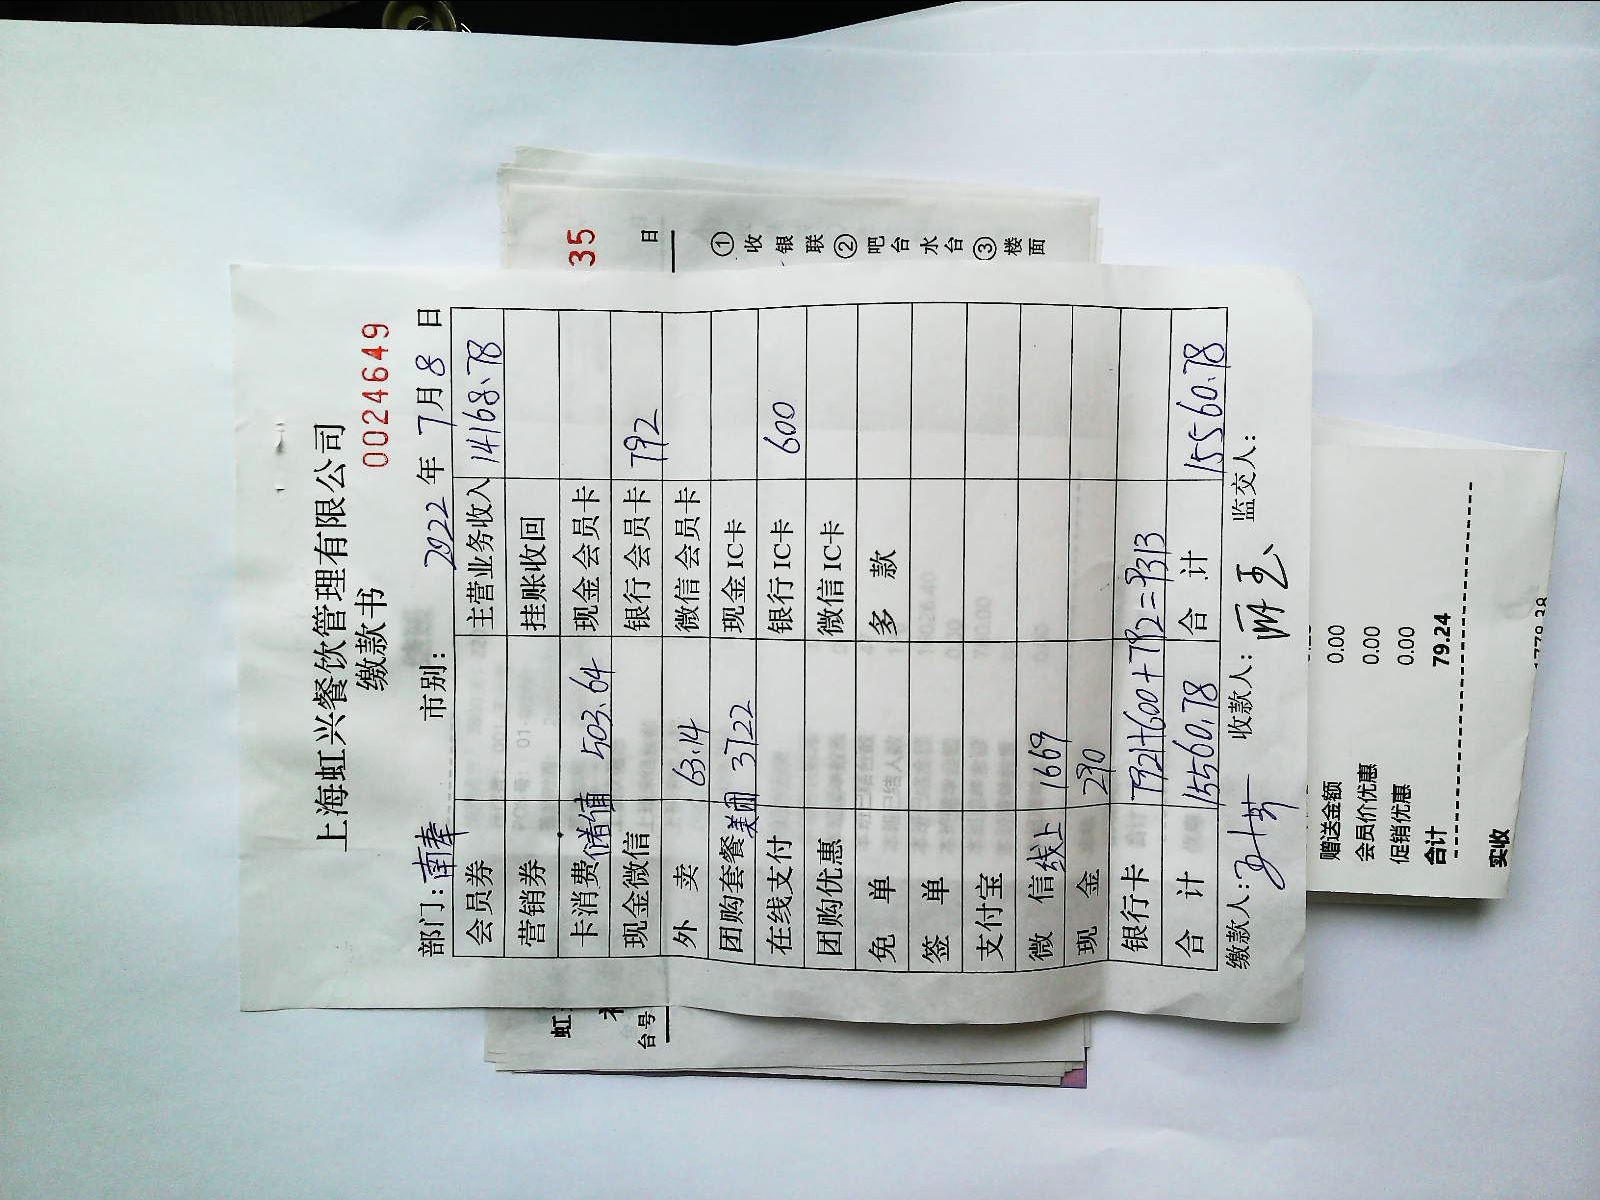 上海虹兴餐饮管理有限公司
缴款书
0024649
部门：南奉 市别： 2022 年 7 月 8 日
会员券 主营业务收入 14168.78
营销券 挂账收回
卡消费 储值 503.64 现金会员卡
现金微信 银行会员卡 792
外 卖 63.14 微信会员卡
团购套餐 美团 3722 现金IC卡
在线支付 银行IC卡 600
团购优惠 微信IC卡
免 单 多 款
签 单
支付宝
微 信 线上 1669
现 金 290
银行卡 7921+600+792=9313
合 计 15560.78 合 计 15560.78
缴款人： 收款人： 监交人：
35
日
①收银联②吧台水台③楼面
虹
台号
赠送金额 0.00
会员价优惠 0.00
促销优惠 0.00
合计 79.24
实收